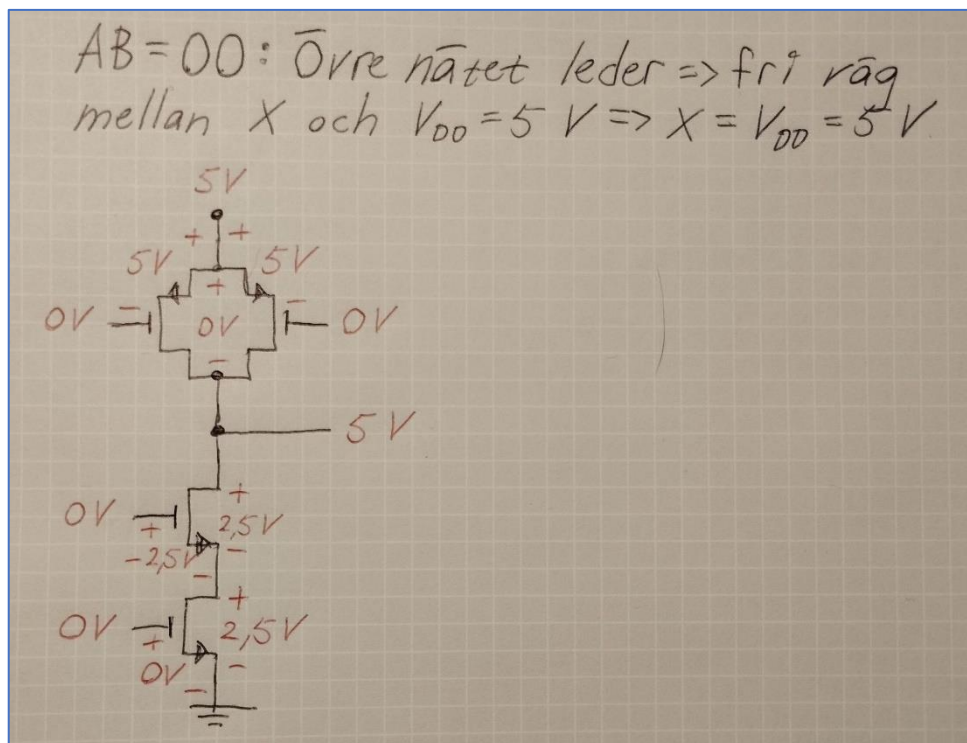 AB = 00 : Övre nätet leder => fri väg
mellan X och VDD = 5 V => X = VDD = 5 V
5V
+ +
5V 5V
+
- -
0V 0V 0V
-
5 V
+
0V 2,5V
+
-2,5V -
-
+
0V 2,5V
+
0V -
-